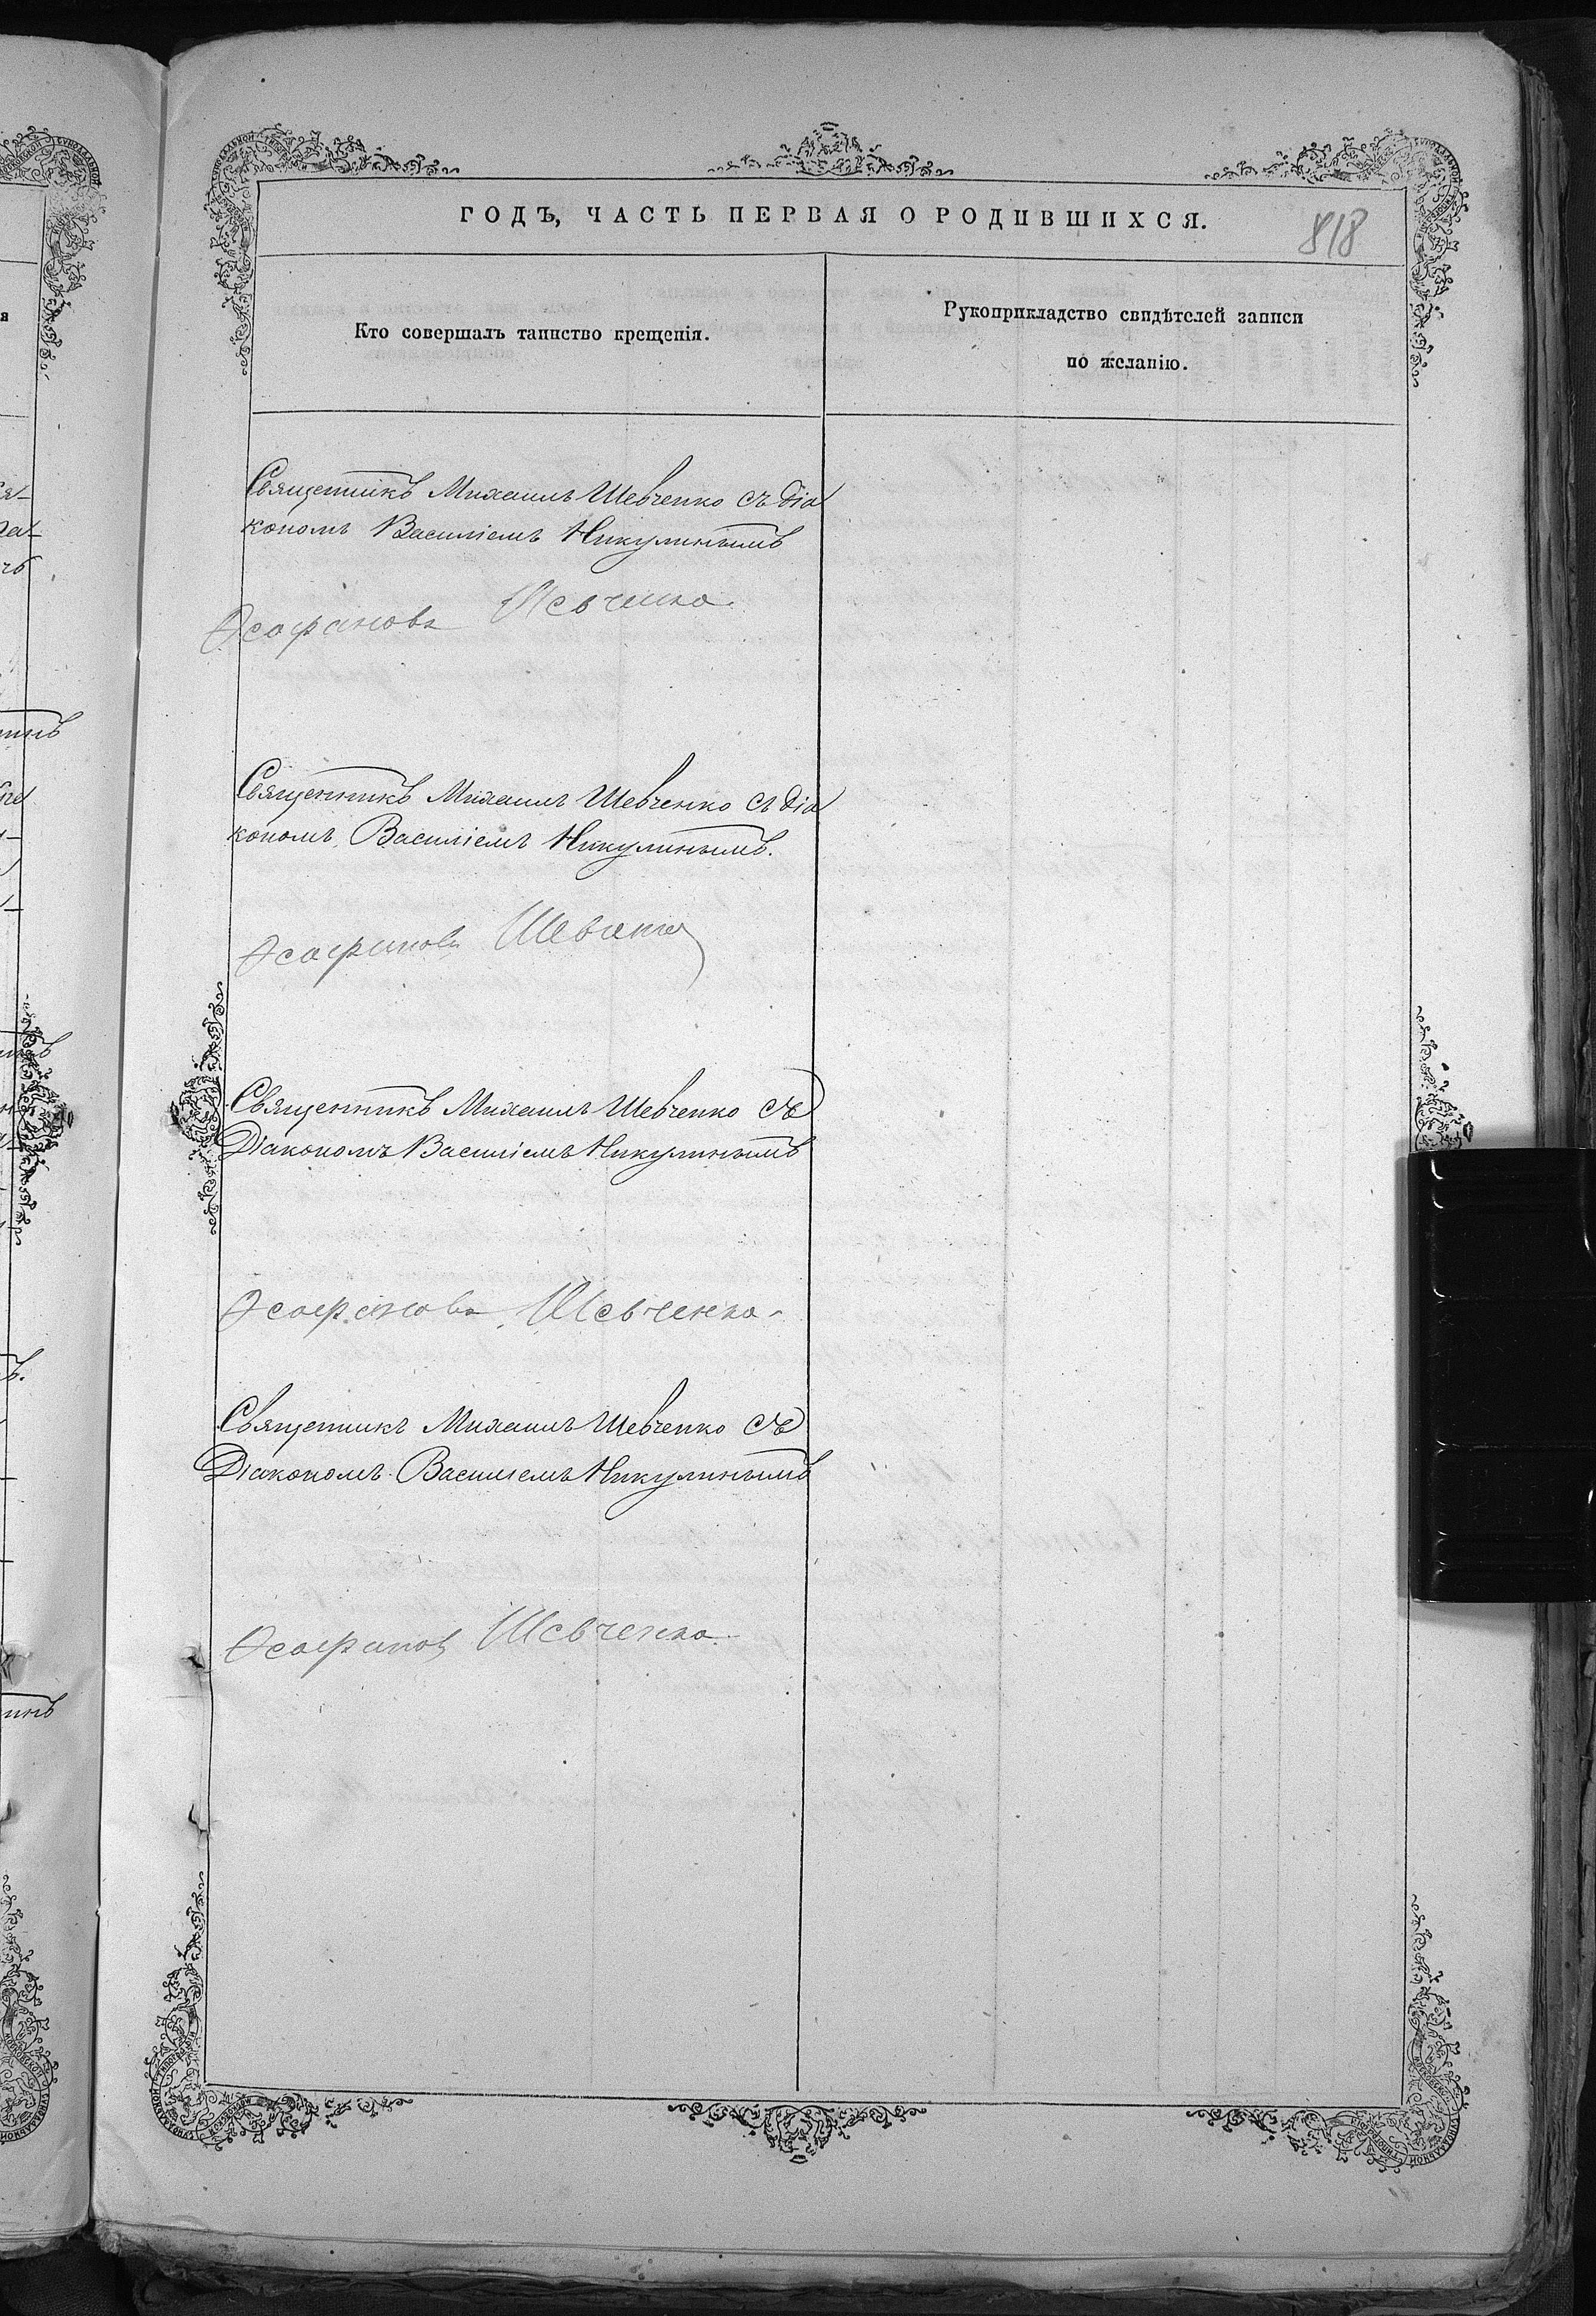 ГОДЪ, ЧАСТЬ ПЕРВАЯ О РОДИВШИХСЯ.
818
Кто совершалъ таинство крещенія.
Рукоприкладство свидѣтелей записи
по желанію.
Священникъ Михаилъ Шевченко съ діа
кономъ Василіемъ Никулинымъ
Ѳеофановъ Шевченко
Священникъ Михаилъ Шевченко съ діа
кономъ Василіемъ Никулинымъ.
Ѳеофановъ Шевченко
Священникъ Михаилъ Шевченко съ
Діакономъ Василіемъ Никулинымъ
Ѳеофановъ Шевченко
Священникъ Михаилъ Шевченко съ
Діакономъ Василіемъ Никулинымъ
Ѳеофановъ Шевченко